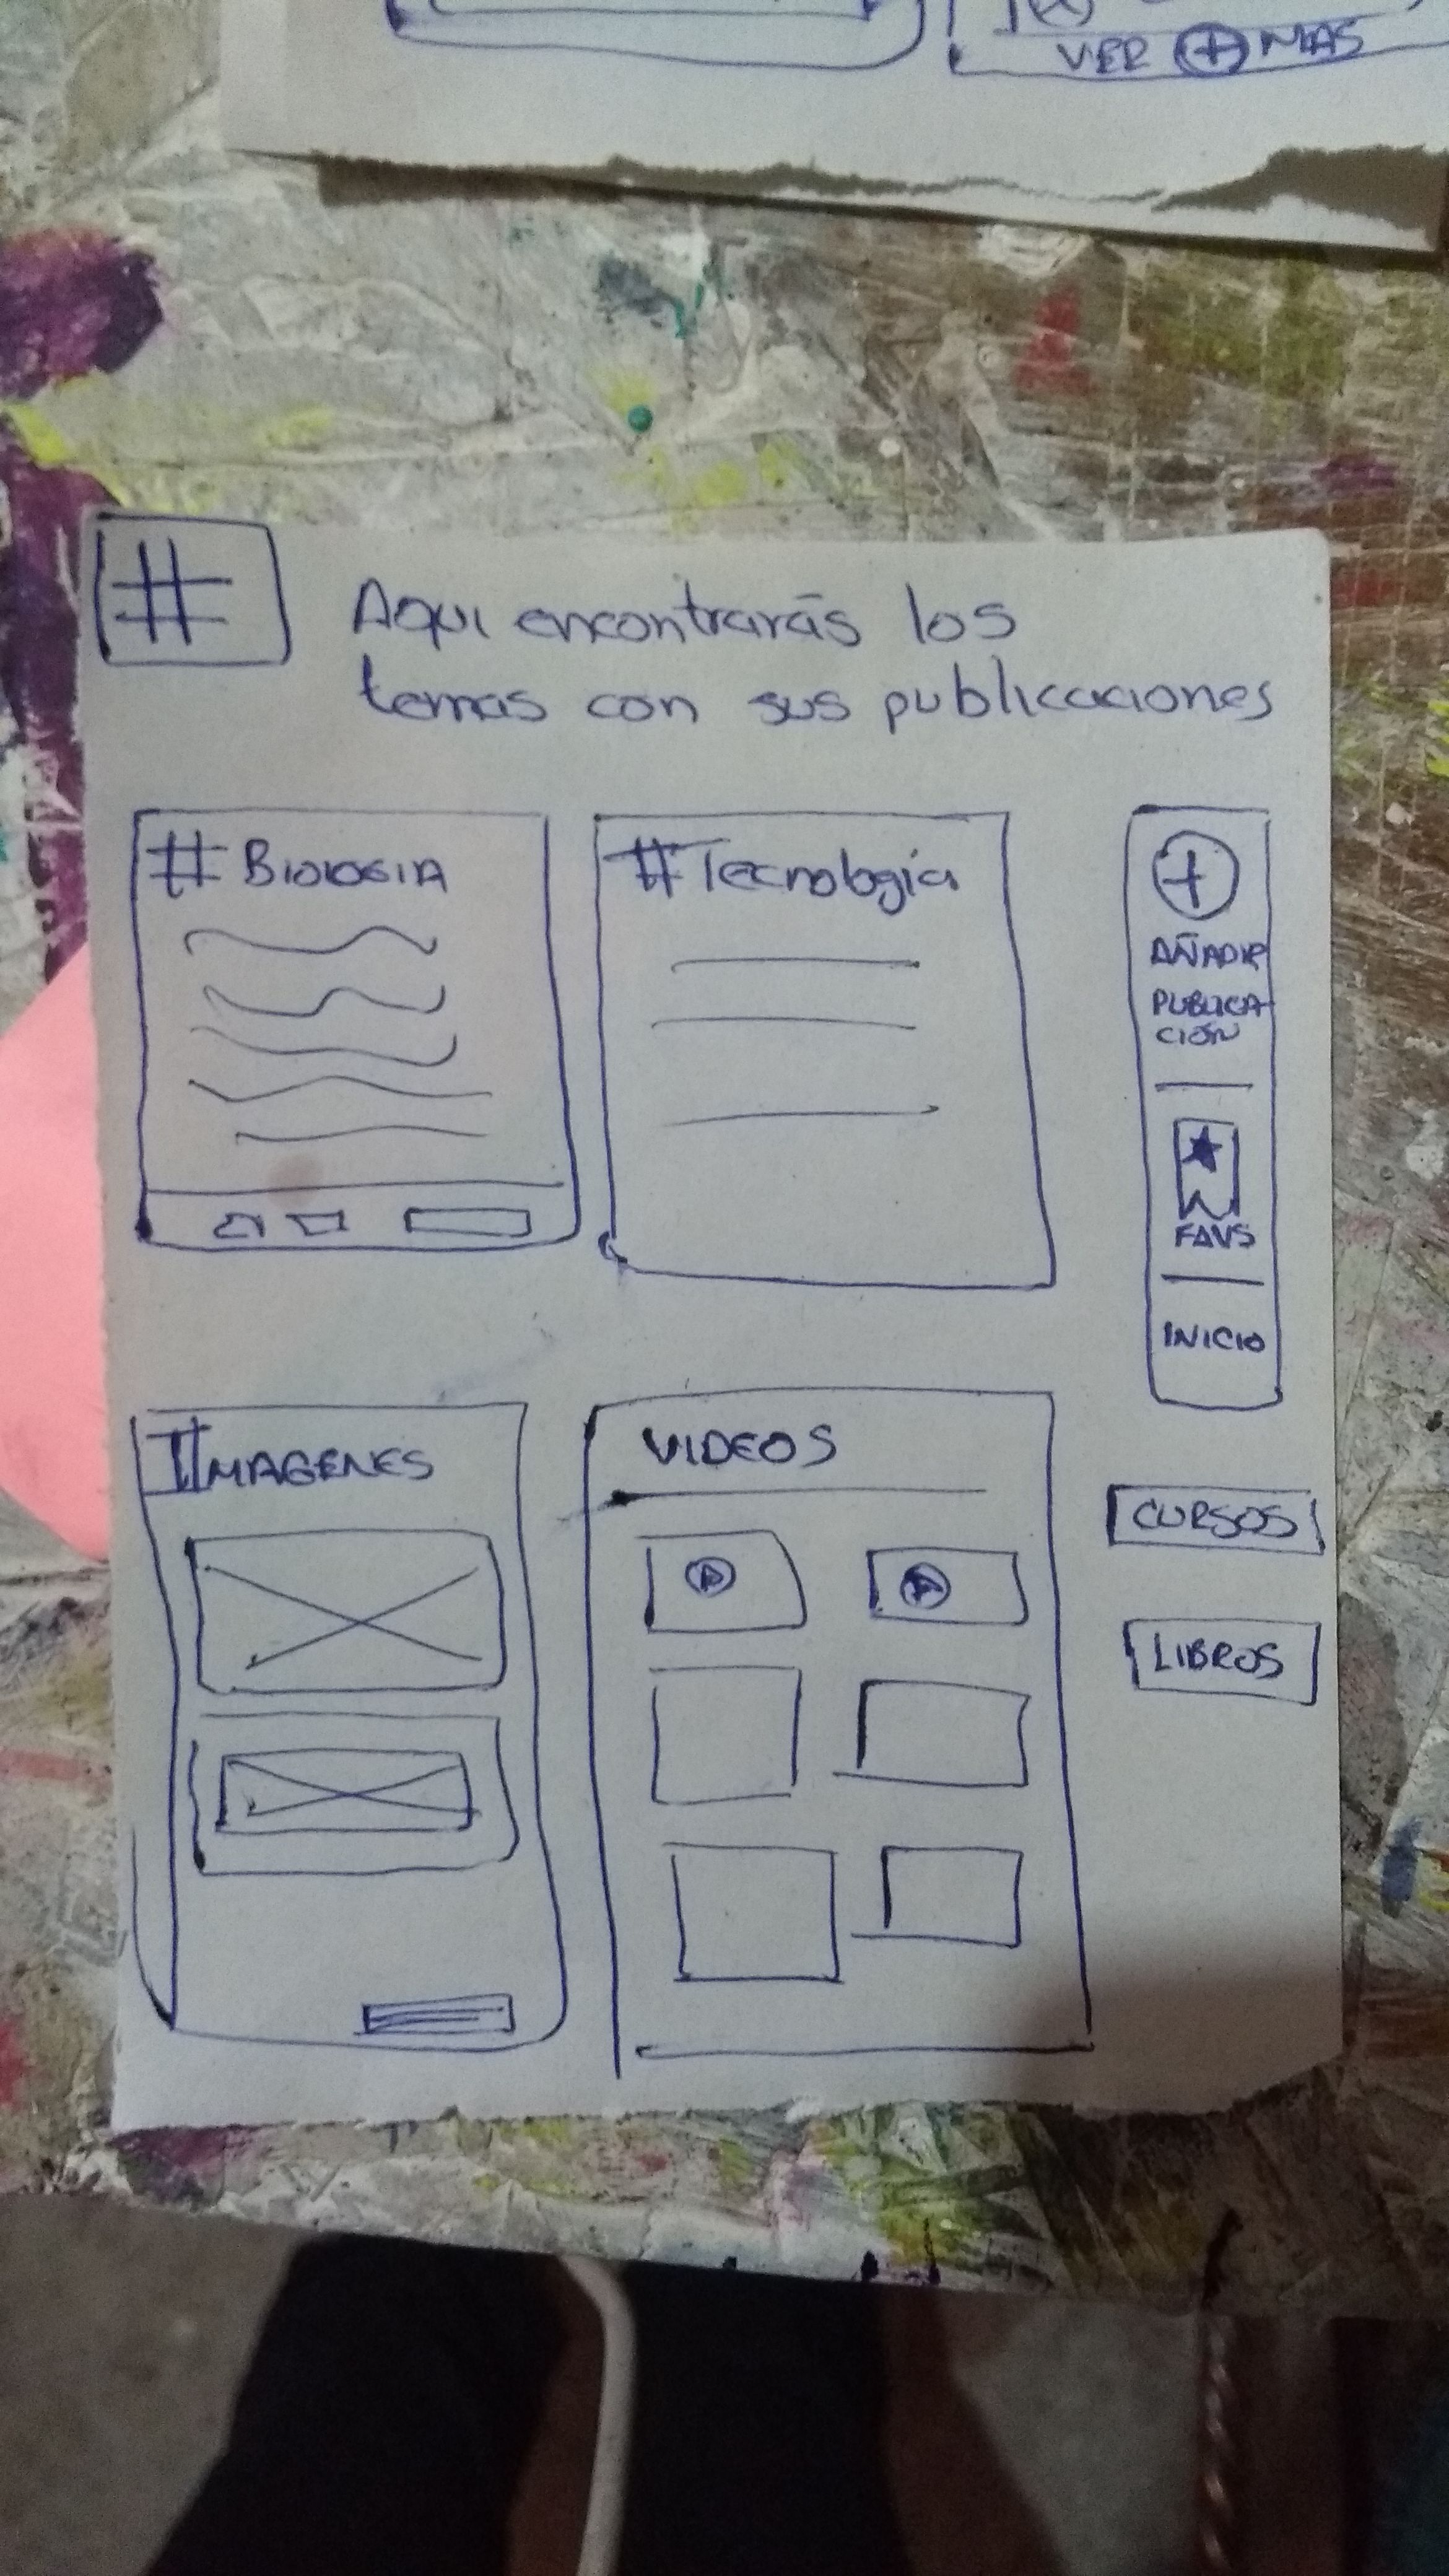 VER + MAS
#
Aqui encontrarás los
temas con sus publicaciones
# BIOLOGIA
#Tecnología
+
AÑADIR
PUBLICA
CIÓN
FAVS
INICIO
#IMAGENES
VIDEOS
CURSOS
LIBROS